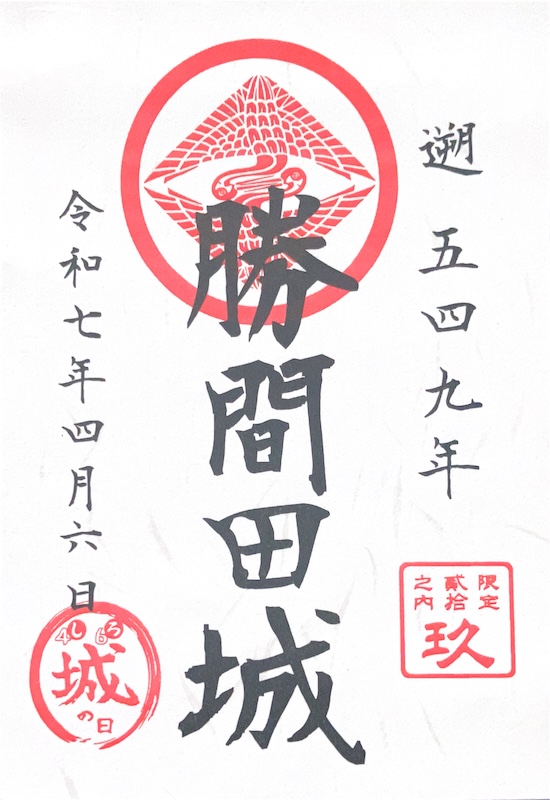 遡 五四九年
勝間田城
限定
貳拾
之内
玖
令和七年四月六日
4し 6ろ
城
の日